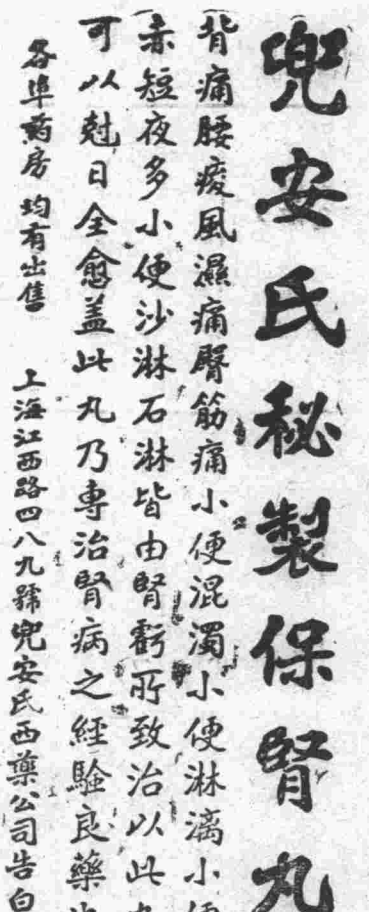 兜安氏秘製保腎丸
背痛腰痠風濕痛臀筋痛小便混濁小便淋漓小便
赤短夜多小便沙淋石淋皆由腎虧所致治以此丸
可以尅日全愈盖此丸乃専治腎病之經驗良藥
各埠葯房均有出售　上海江西路四八九號兜安氏西藥公司告白